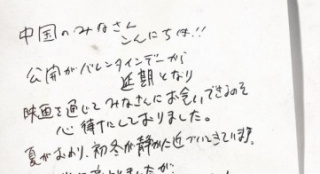 中国のみなさん
こんにちは!!
公開がバレンタインデーから
延期となり
映画を通じてみなさんにお会いできるのを
心待ちにしておりました。
夏がおわり、初冬が静かに近づいてきています。